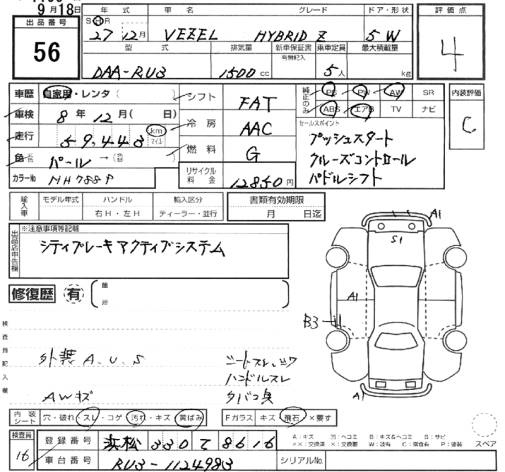 9月18日
年式 車名 グレード ドア・形状 評価点
出品番号 56
S H 27年12月 VEZEL HYBRID Z 5W 4
型式 排気量 新車保証書 乗車定員 最大積載量
有無記入
DAA-RU3 1500cc 5人 kg
車歴 自家用・レンタ( ) シフト FAT
純正のみ PS PW AW SR 内装評価
ABS エアB TV ナビ C
車検 8年12月( 日) 冷房 AAC
セールスポイント
走行 59,443 km マイル 燃料 G
プッシュスタート
クルーズコントロール
パドルシフト
色 パール
カラーNo NH788P リサイクル料金 12850円
輸入車 モデル年式 ハンドル 輸入区分 書類有効期限
右H・左H ディーラー・並行 月 日迄
出品店申告欄 ※注意事項等記載
シティブレーキアクティブシステム
A1
S1
修復歴 有
A1
B3
A1
検査員記入欄
外装A.U.S シートスレ、シワ
ハンドルスレ
AWキズ タバコ臭
内装シート 穴・破れ・スレ・コゲ・汚れ・キズ・黄ばみ Fガラス キズ・飛石・×要す
検査員 16
登録番号 浜松 330 て 8616
A:キズ U:ヘコミ B:キズ&ヘコミ S:サビ
スペア
車台番号 RU3-1124983 シリアルNo.